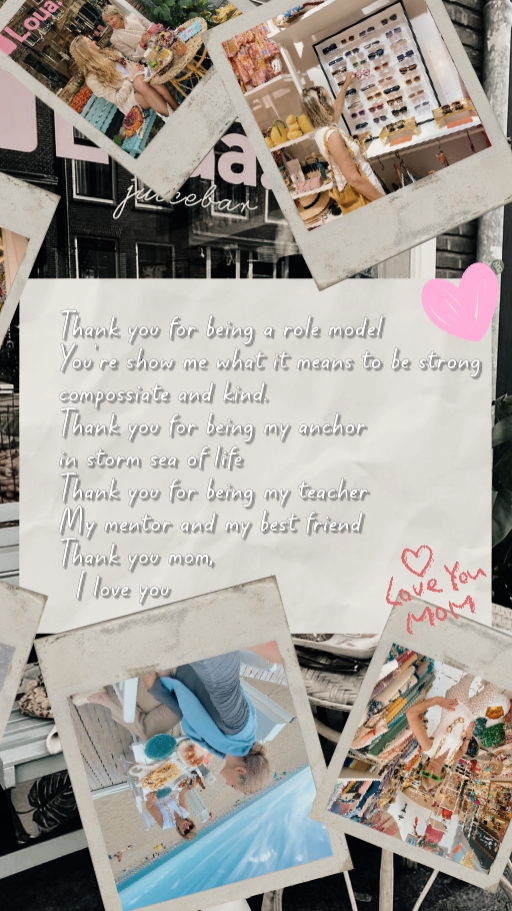 Loua.
juicebar
Thank you for being a role model
You're show me what it means to be strong
compossiate and kind.
Thank you for being my anchor
in storm sea of life
Thank you for being my teacher
My mentor and my best friend
Thank you mom,
I love you
Love You
MOM